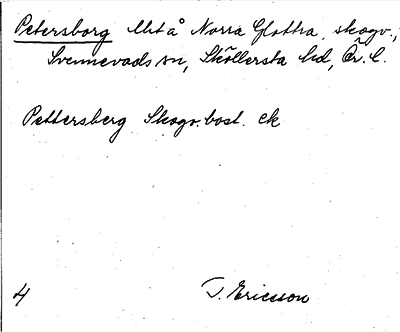 Petersborg Utå Norra Glottra, skogv.,
Svennevads sn, Sköllersta hd, Ör. l.
Pettersberg Skogv.bost. ek
4 T. Ericsson